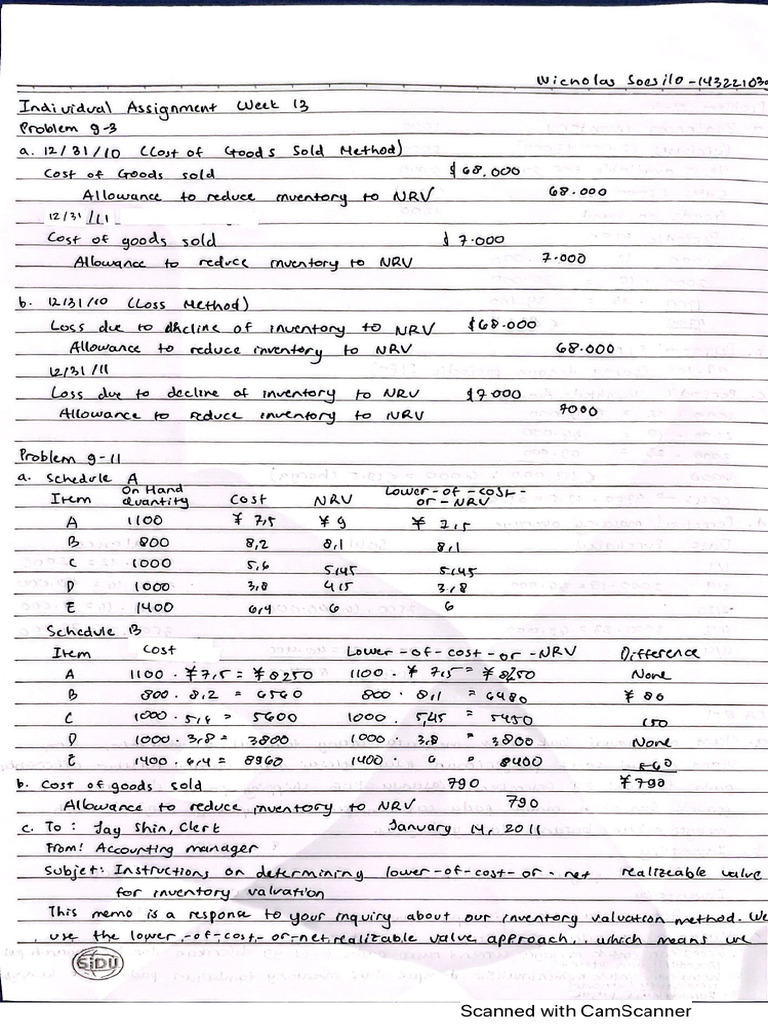 Nicholas Soesilo - 143221030
Individual Assignment Week 13
Problem 9-3
a. 12/31/10 (Cost of Goods Sold Method)
Cost of Goods sold $68.000
Allowance to reduce inventory to NRV 68.000
12/31/11
Cost of goods sold $7.000
Allowance to reduce inventory to NRV 7.000
b. 12/31/10 (Loss Method)
Loss due to decline of inventory to NRV $68.000
Allowance to reduce inventory to NRV 68.000
12/31/11
Loss due to decline of inventory to NRV $7000
Allowance to reduce inventory to NRV 7000
Problem 9-11
a. Schedule A
Item On Hand Quantity Cost NRV Lower-of-cost-or-NRV
A 1100 ¥ 7,5 ¥ 9 ¥ 7,5
B 800 8,2 8,1 8,1
C 1000 5,6 5,45 5,45
D 1000 3,8 4,5 3,8
E 1400 6,4 6 6
Schedule B
Item Cost Lower-of-cost-or-NRV Difference
A 1100 . ¥7,5 = ¥8250 1100 . ¥ 7,5 = ¥ 8250 None
B 800 . 8,2 = 6560 800 . 8,1 = 6480 ¥ 80
C 1000 . 5,6 = 5600 1000 . 5,45 = 5450 150
D 1000 . 3,8 = 3800 1000 . 3,8 = 3800 None
E 1400 . 6,4 = 8960 1400 . 6 = 8400 560
b. Cost of goods sold 790 ¥790
Allowance to reduce inventory to NRV 790
c. To : Jay Shin, Clerk January 14, 2011
From: Accounting manager
Subjet: Instructions on determining lower-of-cost-or-net realizeable value
for inventory valuation
This memo is a response to your inquiry about our inventory valuation method. We
use the lower-of-cost-or-net realizable value approach, which means we
SIDU
Scanned with CamScanner